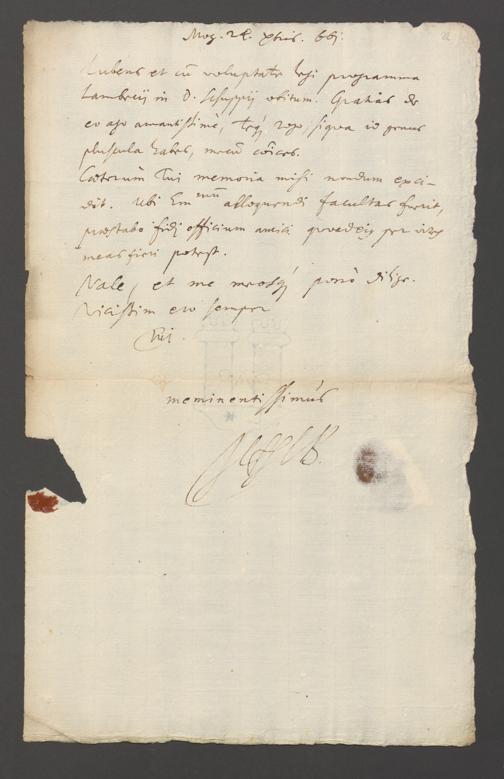 Mog. 28. Xbris. 661.
Lubens et cū voluptate legi programma
Lambecij in D. Schuppij obitum. Gratias de
eo ago amantissimè, teq́ rogo, siqua id genus
pluscula habes, mecū cōices.
Cæterùm tui memoria mihi nondum exci-
dit. Ubi Em^mum alloquendi facultas fuerit,
præstabo fidj officium amici per vires
meas fieri potest.
Vale, et me meosq́ porrò dilige.
Vicissim ero semper
Tui.
meminentissimus